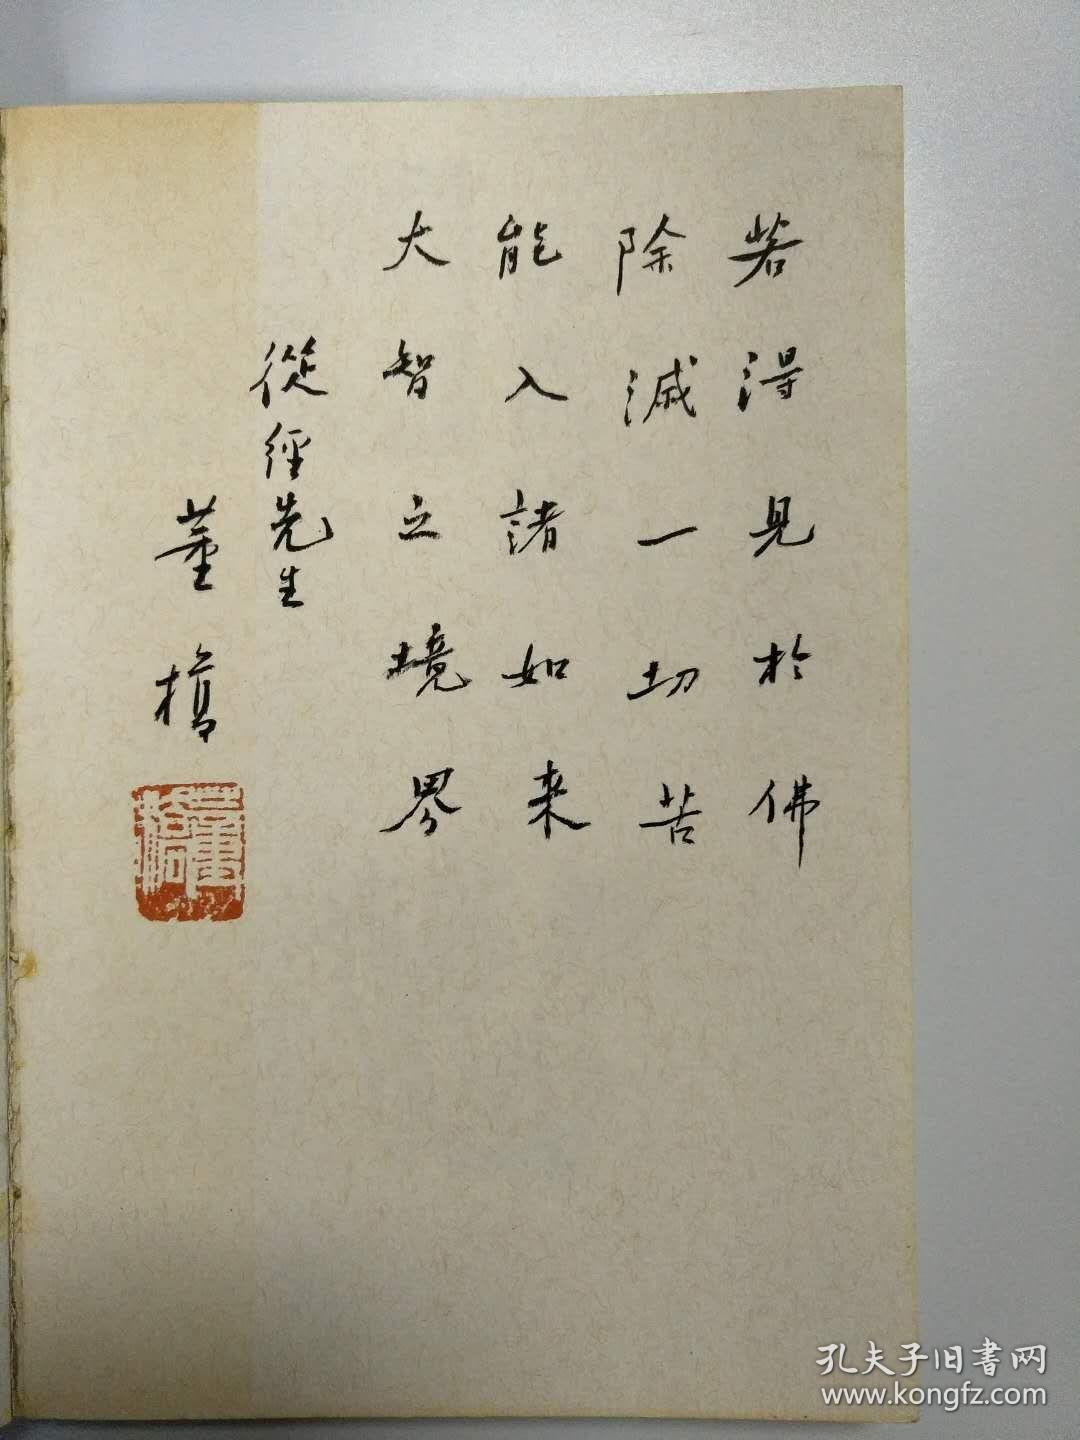 若得見於佛
除滅一切苦
能入諸如来
大智之境界
從經先生
董橋
孔夫子旧書网
www.kongfz.com